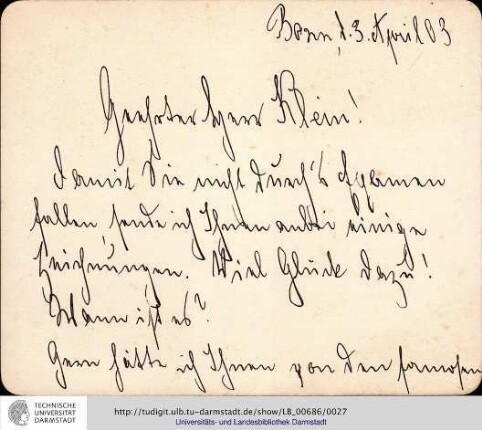 Bonn, d. 3. April 03
Geehrter Herr Klein!
Damit Sie nicht durch's Examen
fallen, sende ich Ihnen anbei einige
Zeichnungen. Viel Glück dazu!
Wann ist es?
Gern hätte ich Ihnen von den famosen
TECHNISCHE
UNIVERSITÄT
DARMSTADT
http://tudigit.ulb.tu-darmstadt.de/show/LB_00686/0027
Universitäts- und Landesbibliothek Darmstadt